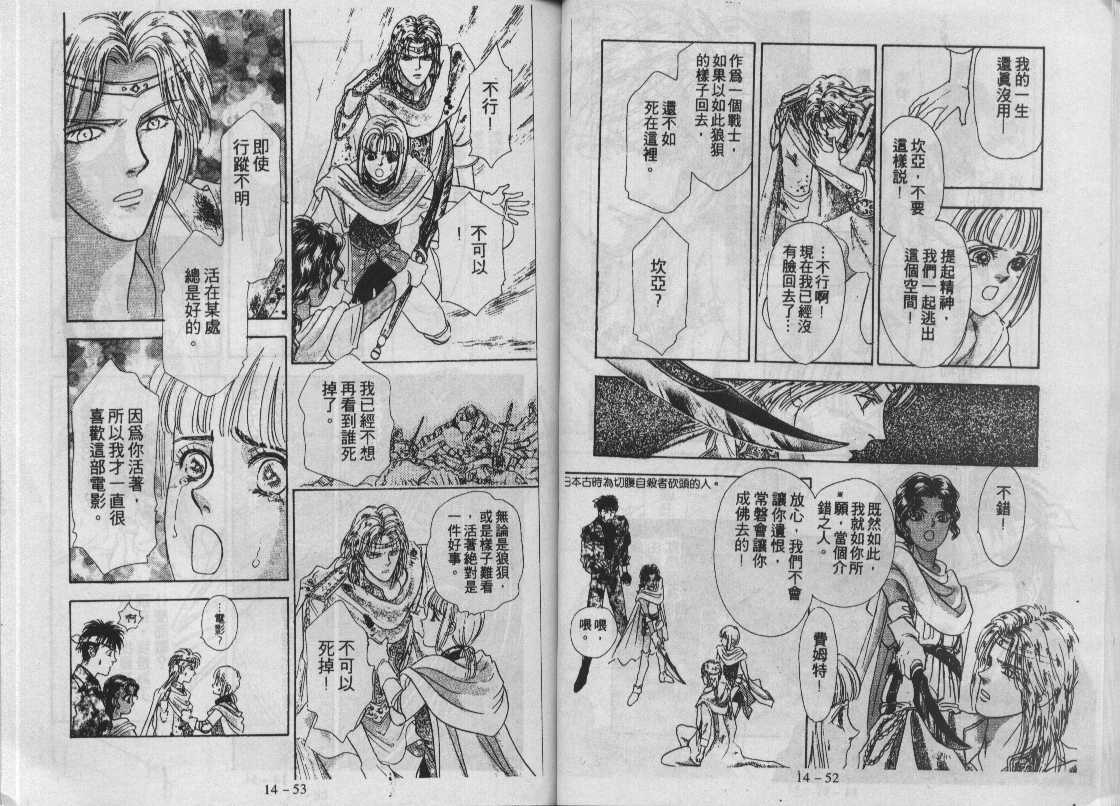 我的一生
還真沒用—
坎亞，不要
這樣説！
提起精神，
我們一起逃出
這個空間！
…不行啊！
現在我已經沒
有臉回去了…
作爲一個戰士，
如果以如此狼狽
的樣子回去，
還不如
死在這裡。
坎亞？
不錯！
既然如此，
我就如你所
願，當個介
錯之人。
※
放心，我們不會
讓你遺恨，
常磐會讓你
成佛去的！
日本古時為切腹自殺者砍頭的人。
喂，
喂。
費姆特！
14－52
不行！
不可以
！
即使
行蹤不明—
活在某處
總是好的。
我已經不想
再看到誰死
掉了。
因爲你活著，
所以我才一直很
喜歡這部電影。
無論是狼狽，
或是樣子難看
，活著絕對是
一件好事。
不可以
死掉！
…電影？
啊
14－53